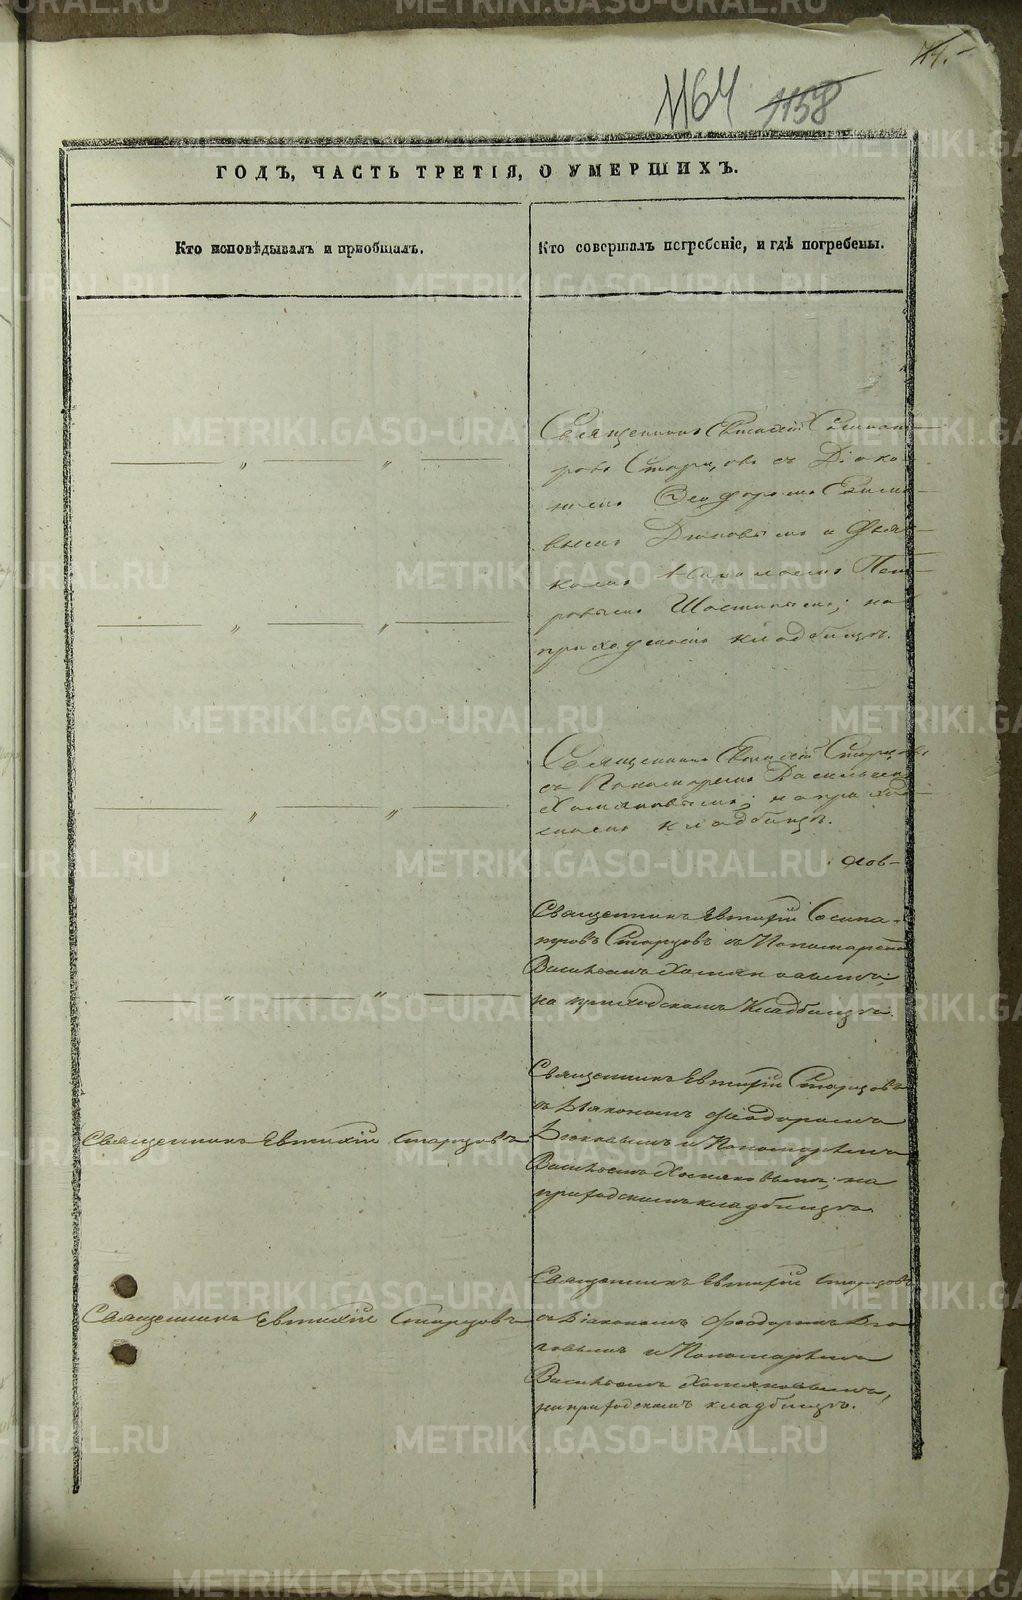 1164 1158
ГОДЪ, ЧАСТЬ ТРЕТІЯ, О УМЕРШИХЪ.
Кто исповѣдывалъ и пріобщалъ.
Кто совершалъ погребеніе, и гдѣ погребены.
Священникъ Евтихій
ровъ Старцовъ съ Діако-
номъ Ѳеодоромъ
вымъ и Дьяч-
комъ Пет-
ровымъ на
приходскомъ кладбищѣ.
Священникъ Евтихій Старцовъ
съ Пономаремъ Васильемъ
Хомяковымъ; на приход-
скомъ кладбищѣ.
Священникъ Евтихій
Старцовъ съ Пономаремъ
Васильемъ Хомяковымъ;
на приходскомъ кладбищѣ.
Священникъ Евтихій Старцовъ
Священникъ Евтихій Старцовъ
съ Діакономъ Феодоромъ
и Пономаремъ
Васильемъ Хомяковымъ; на
приходскомъ кладбищѣ.
Священникъ Евтихій Старцовъ
Священникъ Евтихій Старцовъ
съ Діакономъ Феодоромъ
и Пономаремъ
Васильемъ Хомяковымъ,
на приходскомъ кладбищѣ.
METRIKI.GASO-URAL.RU